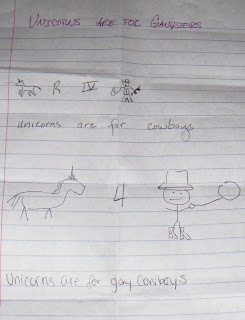 UNICORNS ARE FOR GANGSTERS
R IV
unicorns are for cowboys
4
Unicorns are for gay cowboys